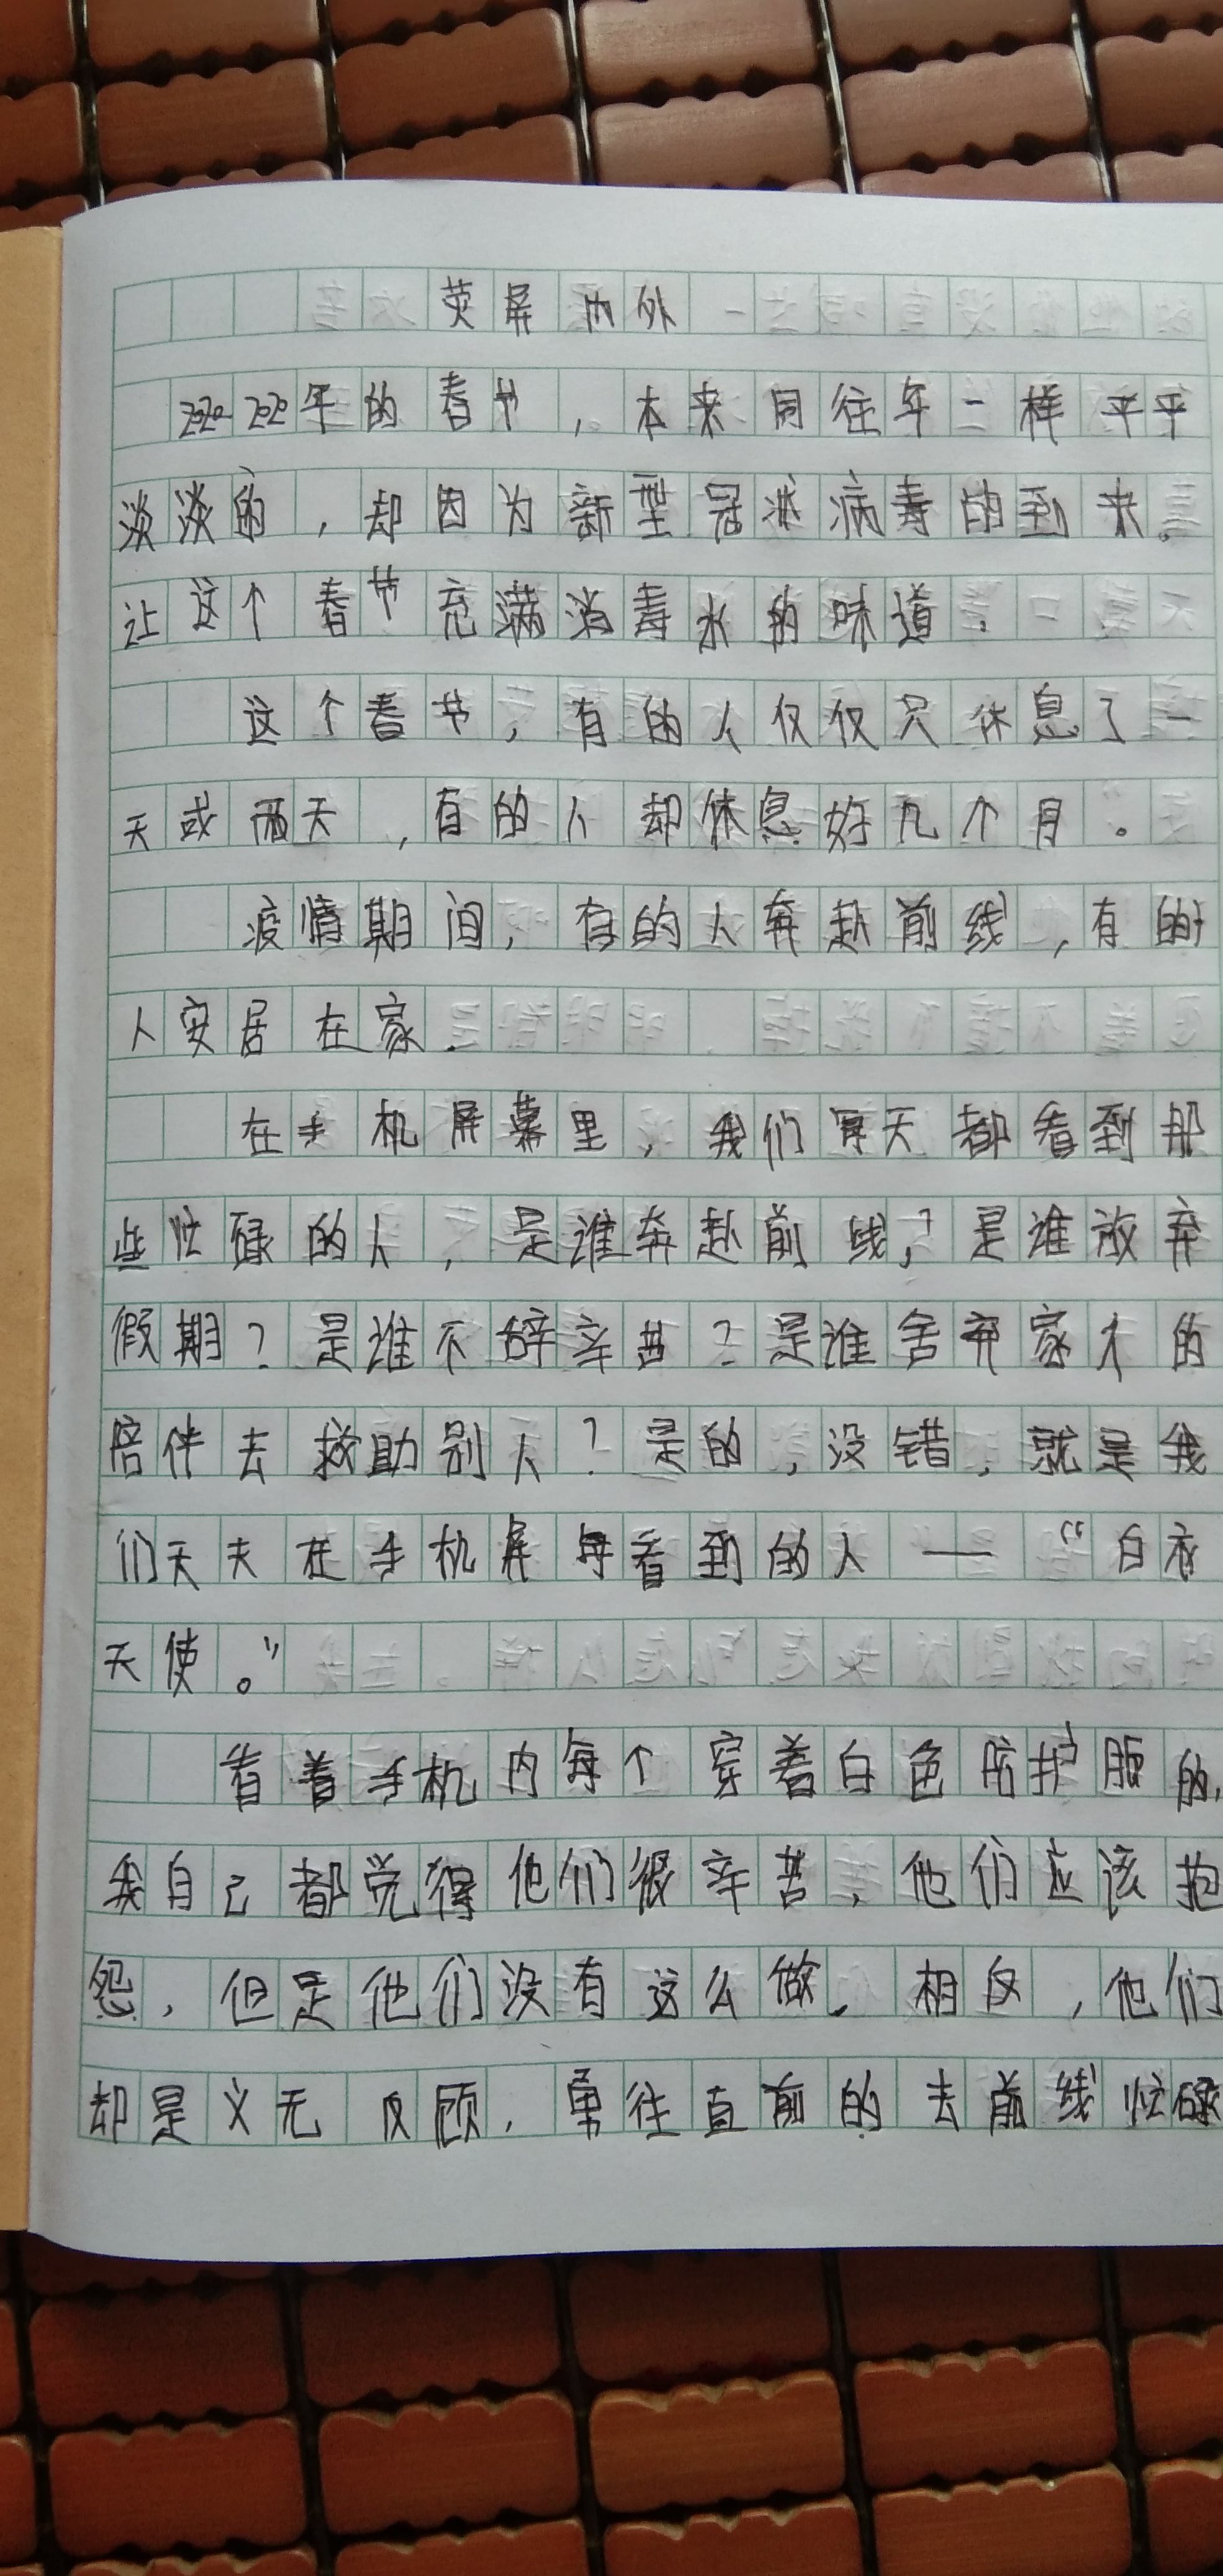 荧屏内外
2020年的春节，本来同往年一样平平
淡淡的，却因为新型冠状病毒的到来。
让这个春节充满消毒水的味道．
这个春节，有的人仅仅只休息了一
天或两天，有的人却休息好几个月。
疫情期间，有的人奔赴前线，有的
人安居在家．
在手机屏幕里，我们每天都看到那
些忙碌的人，是谁奔赴前线？是谁放弃
假期？是谁不辞辛苦？是谁舍弃家人的
陪伴去救助别人？是的，没错，就是我
们天天在手机屏每看到的人——“白衣
天使。”
看着手机内每个穿着白色防护服的，
我自己都觉得他们很辛苦，他们应该抱
怨，但是他们没有这么做．相反，他们
却是义无反顾，勇往直前的去前线忙碌